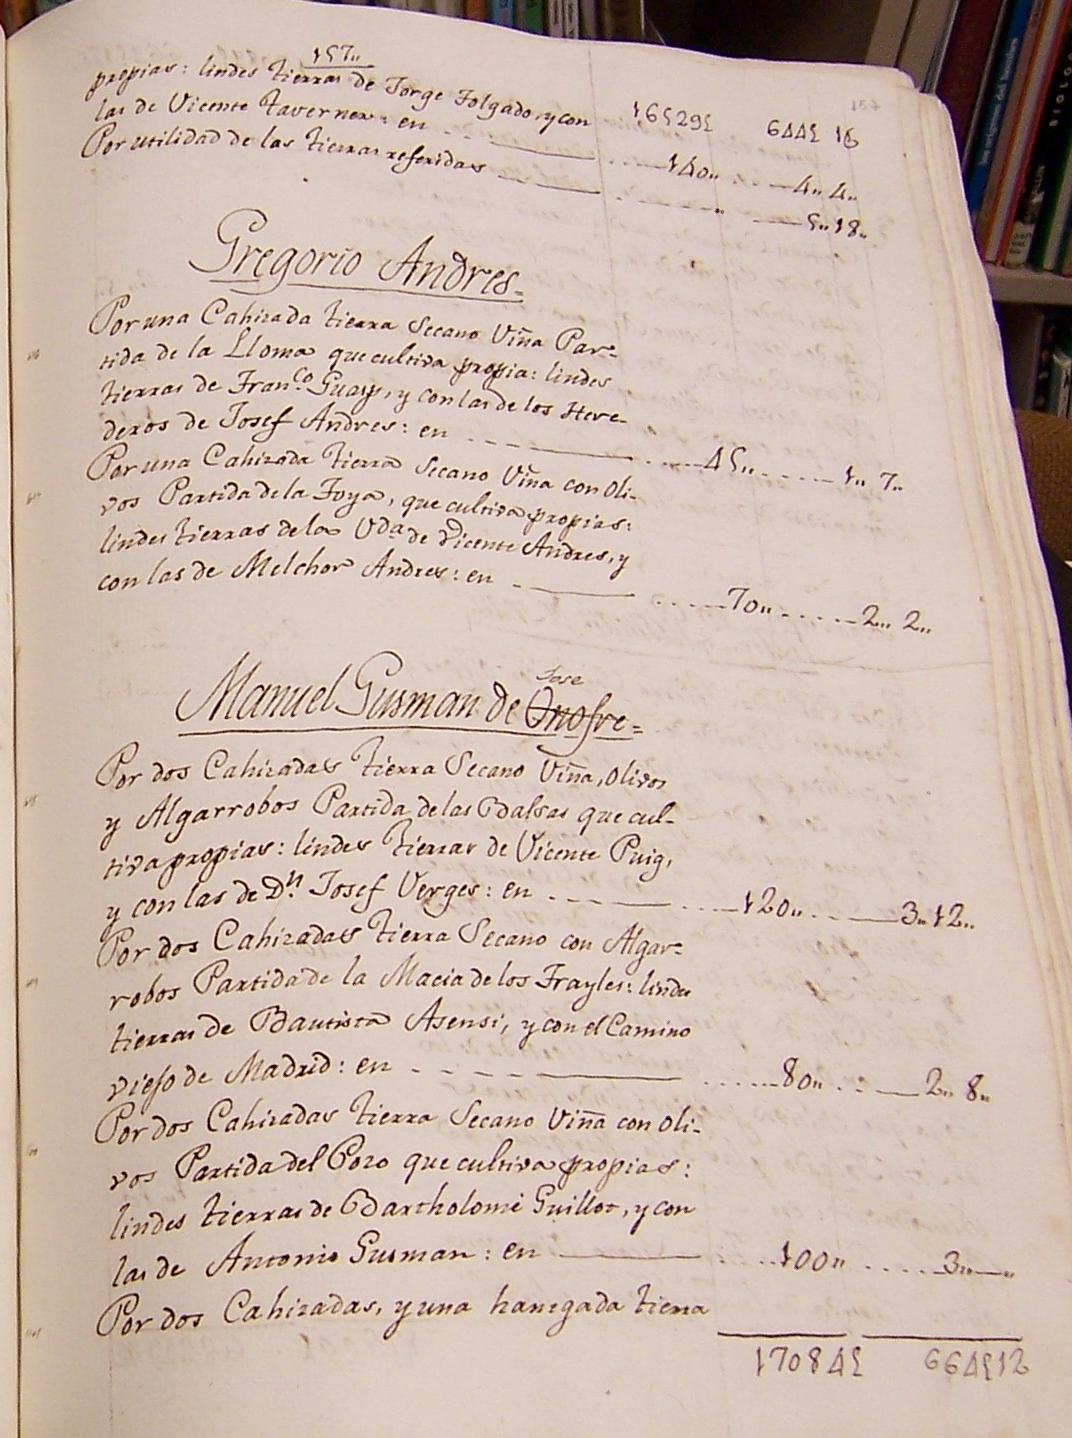 157,,
157
propias: lindes tierras de Jorge Folgado, y con 16529£ 644£ 16
las de Vicente Taverner: en 140,, 4,, 4,,
Por utilidad de las tierras referidas ,, 5,, 18,,
Gregorio Andres
Por una Cahizada tierra Secano Viña Par-
tida de la Lloma que cultiva propia: lindes
tierras de Fran.co Guasp, y con las de los Here-
deros de Josef Andres: en 45,, 1,, 7,,
Por una Cahizada tierra Secano Viña con Oli-
vos Partida de la Foya, que cultiva propias:
lindes tierras de la Vda. de Vicente Andres, y
con las de Melchor Andres: en 70,, 2,, 2,,
Jose
Manuel Gusman de Onofre
Por dos Cahizadas tierra Secano Viña, Olivos
y Algarrobos Partida de las Balsas que cul-
tiva propias: lindes tierras de Vicente Puig,
y con las de Dn. Josef Verges: en 120,, 3,, 12,,
Por dos Cahizadas tierra Secano con Algar-
robos Partida de la Macia de los Frayles: lindes
tierras de Bautista Asensi, y con el Camino
viejo de Madrid: en 80,, 2,, 8,,
Por dos Cahizadas tierra Secano Viña con Oli-
vos Partida del Pozo que cultiva propias:
lindes tierras de Bartholome Guillot, y con
las de Antonio Gusman: en 100,, 3,, ,,
Por dos Cahizadas, y una hanegada tierra
17084£ 664£12